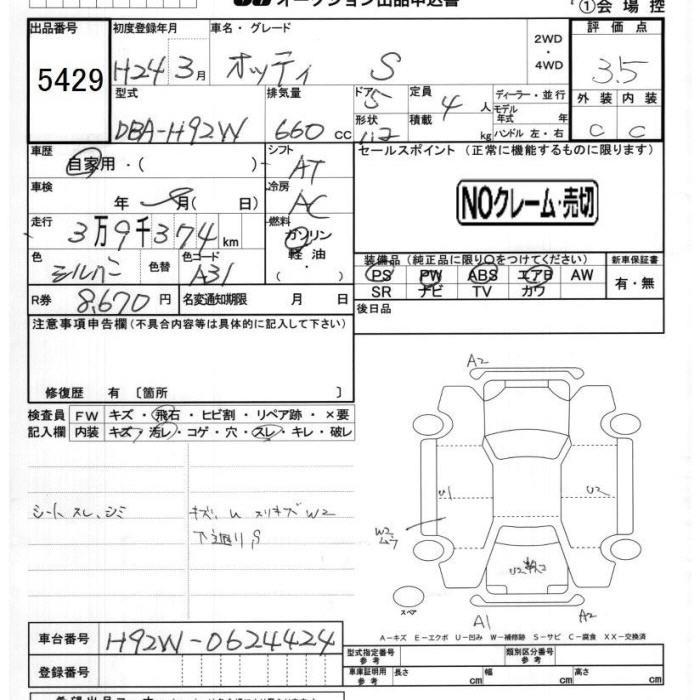 オークション出品申込書
①会場控
出品番号 初度登録年月 車名・グレード 評価点
5429 H24 3月 オッティ S 2WD ・ 4WD 3.5
型式 排気量 ドア 定員 ディーラー・並行 外装 内装
DBA-H92W 660cc 5 4人 モデル年式 年 C C
形状 積載 kg ハンドル 左・右
車歴 シフト セールスポイント (正常に機能するものに限ります)
自家用・( ) AT
車検 冷房 NOクレーム・売切
年 月( 日) AC
走行 燃料
3万9千374km ガソリン
軽油
・( )
色 色替 色コード 装備品(純正品に限り○をつけてください) 新車保証書
シルバー A31 PS PW ABS エアB AW 有・無
SR ナビ TV カワ
R券 8,670円 名変通知期限 月 日 後日品
注意事項申告欄(不具合内容等は具体的に記入して下さい)
修復歴 有 〔箇所 〕
検査員 FW キズ・飛石・ヒビ割・リペア跡・×要
記入欄 内装 キズ・汚レ・コゲ・穴・スレ・キレ・破レ
シート スレ、シミ キズ、U スリキズ W2
下廻り S
A2
U1 U2
W2
U2
スペア
A1 A2
A-キズ E-エクボ U-凹み W-補修跡 S-サビ C-腐食 XX-交換済
車台番号 H92W-0624424
登録番号
型式指定番号 参考 類別区分番号 参考
車庫証明用 参考 長さ cm 幅 cm 高さ cm